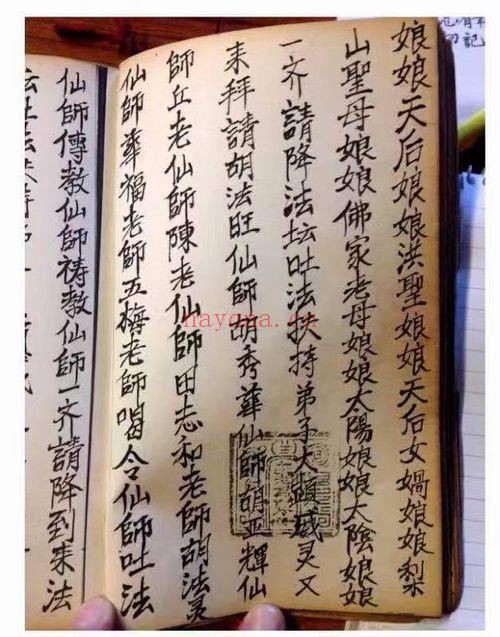 娘娘天后娘娘洪聖娘娘天后女媧娘娘梨
山聖母娘娘佛家老母娘娘太陽娘娘太陰娘娘
一齐請降法坛吐法扶持弟子大顕威灵又
来拜請胡法旺仙師胡秀華仙師胡亚輝仙
師丘老仙師陳老仙師田志和老師胡法灵
仙師華福老師五梅老師唱令仙師吐法
仙師傳教仙師祷教仙師一齐請降到来法